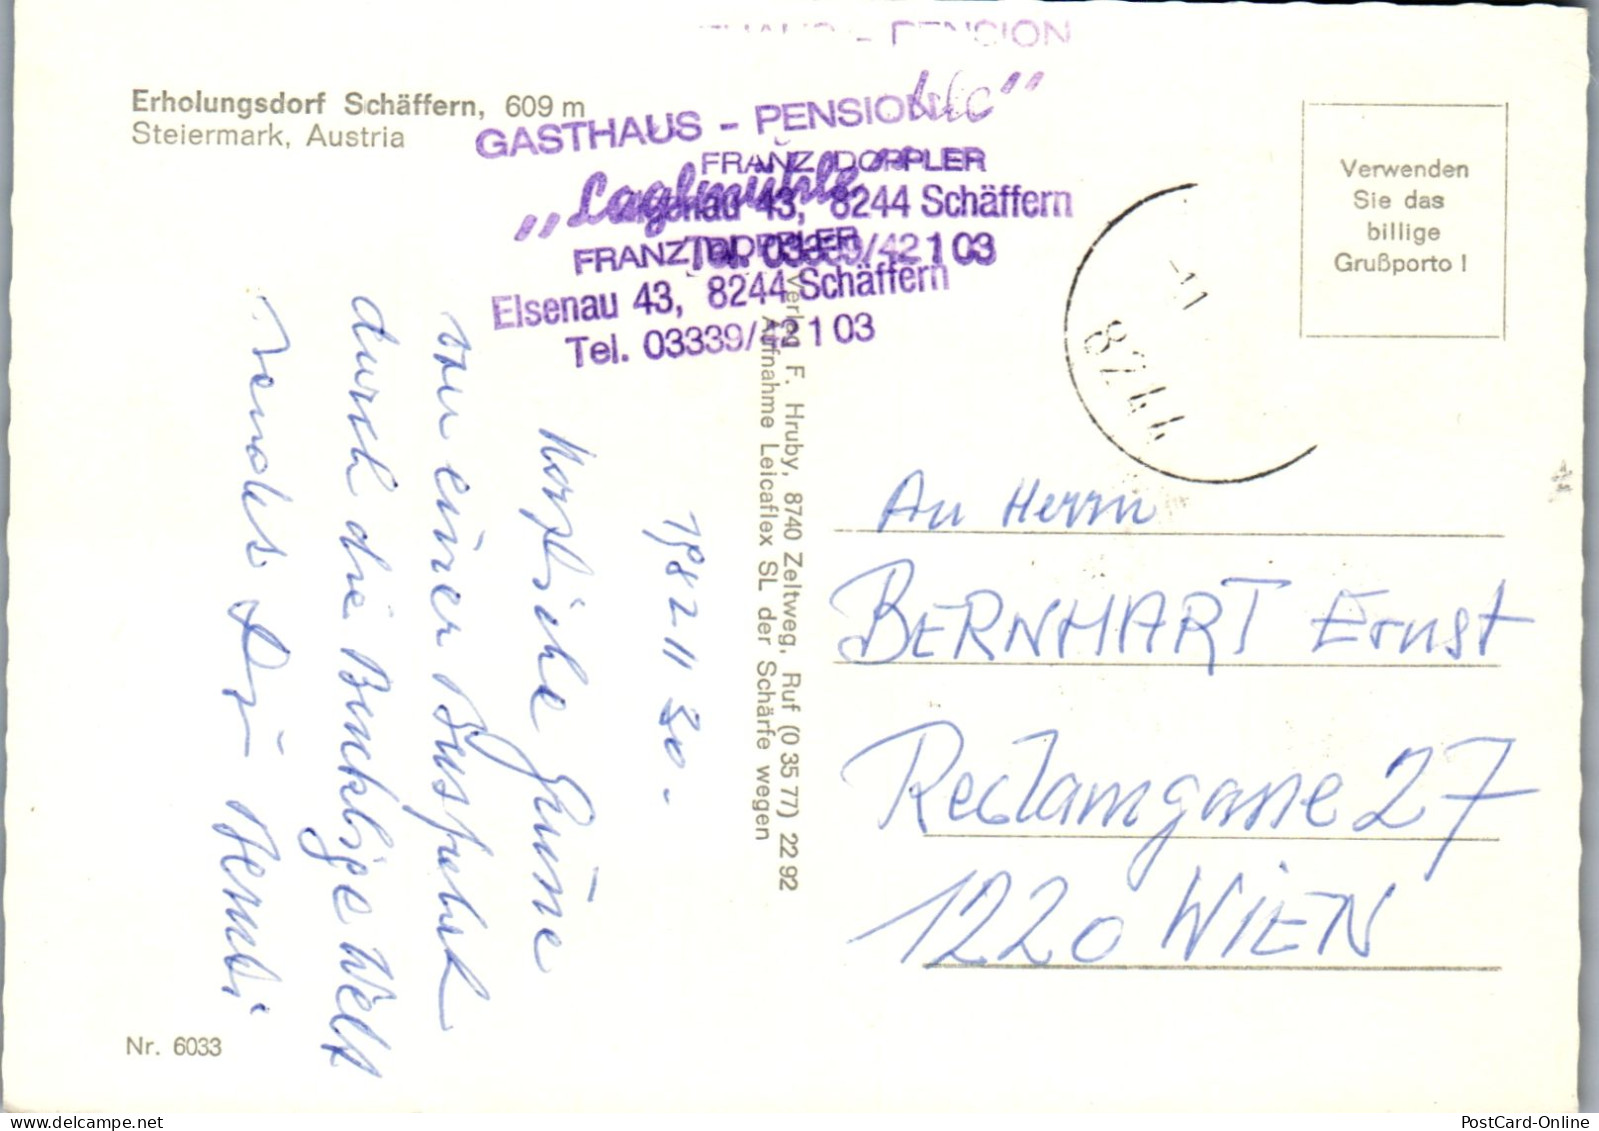 THAUS - PENSION
Erholungsdorf Schäffern, 609 m
Steiermark, Austria
GASTHAUS - PENSION
"
FRANZ DOPPLER
„Laglmühle
Elsenau 43, 8244 Schäffern
FRANZ DOPPLER
Tel. 03339/42 1 03
Elsenau 43, 8244 Schäffern
Tel. 03339/42 1 03
Verwenden
Sie das
billige
Grußporto !
-1
8244
1982 11 30.
Herzliche Grüße
von einer Busfahrt
durch die Bucklige Welt
sendet Dir Hermi
Verlag F. Hruby, 8740 Zeltweg, Ruf (0 35 77) 22 92
Aufnahme Leicaflex SL der Schärfe wegen
An Herrn
BERNHART Ernst
Reclamgasse 27
1220 WIEN
Nr. 6033
PostCard-Online